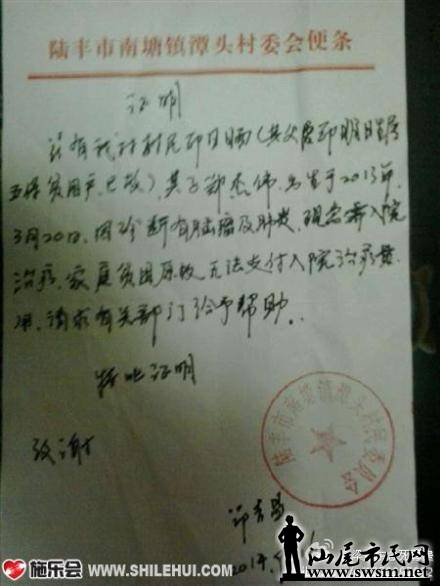 陆丰市南塘镇潭头村委会便条
证明
兹有我村村民
五保贫困户,已故),其子郑杰伟,出生于2013年
3月20日,因诊断有脑瘤及肺炎,现急需入院
治疗,家庭贫困原故,无法支付入院治疗费
用,请求有关部门给予帮助。
特此证明
致谢
陆丰市南塘镇潭头村民委员会
施乐会
WWW.SHILEHUI.COM
汕尾市民网
www.swsm.net